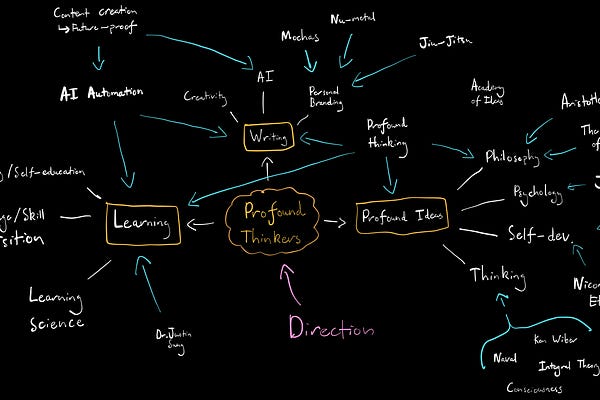 Content creation
↳ Future-proof
AI Automation
Creativity
AI
Mochas
Nu-metal
Jiu-Jitsu
Personal
Branding
Writing
Profound
thinking
Academy
of Ideas
Aristotle
Philosophy
Psychology
Self-dev.
Thinking
/Self-education
/Skill
sition
Learning
Learning
Science
Profound
Thinkers
Profound Ideas
Direction
Dr. Justin
Sung
Naval
Ken Wilber
Integral Theory
Consciousness